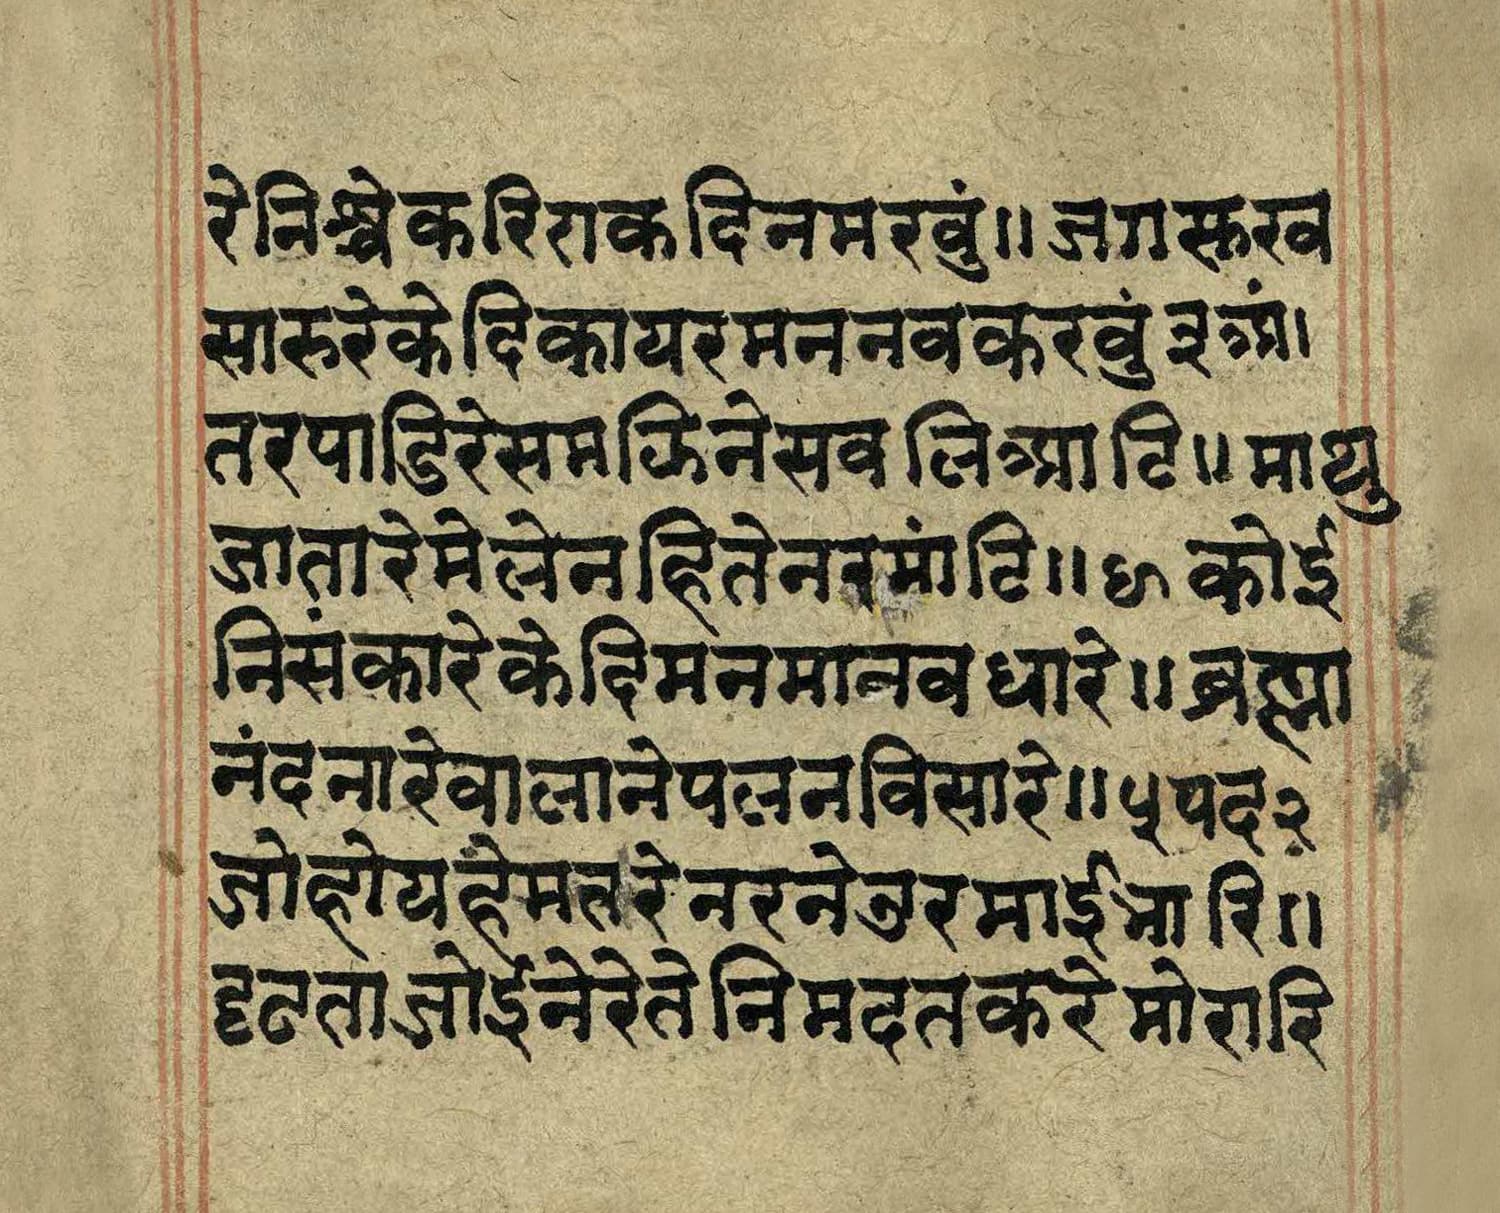 रेनिश्चेकरिराकदिनमरवुं॥जगसरुरव
सारुरेकेदिकायरमननवकरवुं३अं।
तरपाडिरेसमझिनेसवलिआटि॥माथु
जातारेमेलेनहितेनरमांटि॥४कोई
निसंकारेकेदिमनमानवधारे॥ब्रह्मा
नंदनारेवालानेपलनविसारे॥५पद२
जोहोयहेमतरेनरनेउरमाईभारि॥
दृढताजोईनेरेतेनिमदतकरेमोरारि